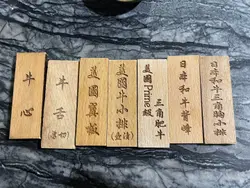 牛心
牛舌
(厚切)
美國翼板
美國牛小排
美國Prime級
三角肥牛
日本和牛
日本和牛三角胸小排